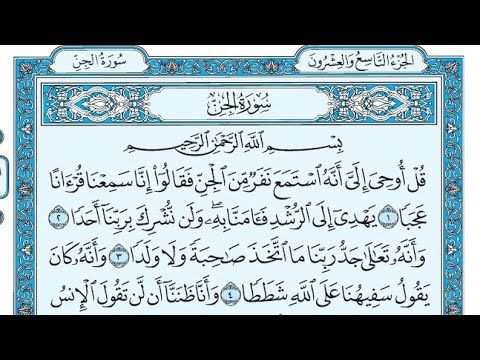 سُورَةُ الجِنِّ
الجُزْءُ التَّاسِعُ وَالعِشْرُونَ
سُورَةُ الجِنِّ
بِسْمِ اللَّهِ الرَّحْمَٰنِ الرَّحِيمِ
قُلْ أُوحِيَ إِلَيَّ أَنَّهُ ٱسْتَمَعَ نَفَرٌ مِّنَ ٱلْجِنِّ فَقَالُوٓا۟ إِنَّا سَمِعْنَا قُرْءَانًا
عَجَبًا ١ يَهْدِىٓ إِلَى ٱلرُّشْدِ فَـَٔامَنَّا بِهِۦ ۖ وَلَن نُّشْرِكَ بِرَبِّنَآ أَحَدًا ٢
وَأَنَّهُۥ تَعَٰلَىٰ جَدُّ رَبِّنَا مَا ٱتَّخَذَ صَٰحِبَةً وَلَا وَلَدًا ٣ وَأَنَّهُۥ كَانَ
يَقُولُ سَفِيهُنَا عَلَى ٱللَّهِ شَطَطًا ٤ وَأَنَّا ظَنَنَّآ أَن لَّن تَقُولَ ٱلْإِنسُ